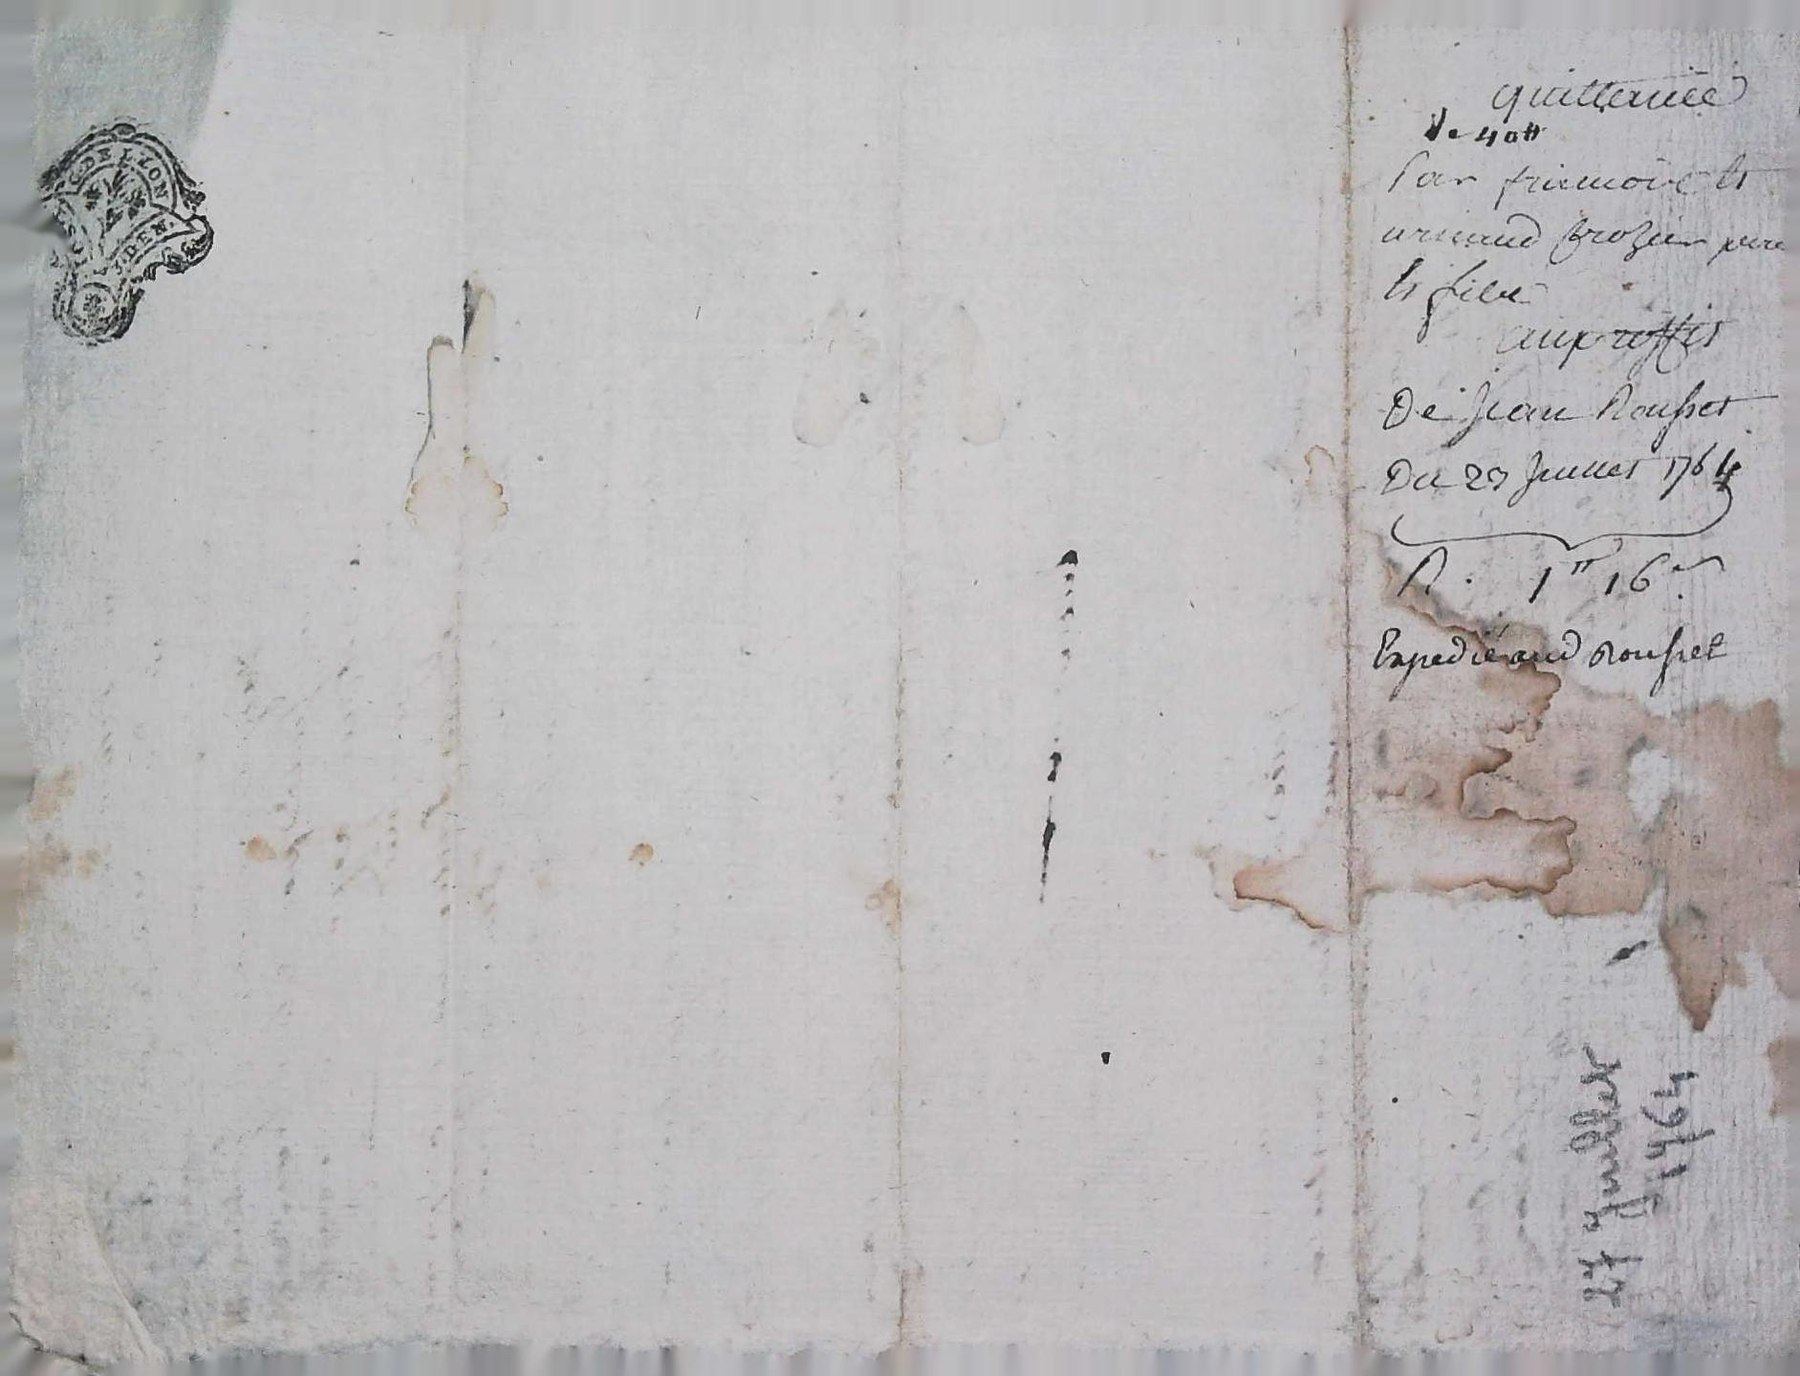 G. DE LYON
S. DEN.
quittance
De 40tt
Par
arnaud frozier pere
et fils
au proffit
De Jean Rousset
Du 27 Juillet 1764
R. 1tt 16
Expedié aud Rousset
27 Juillet
1764